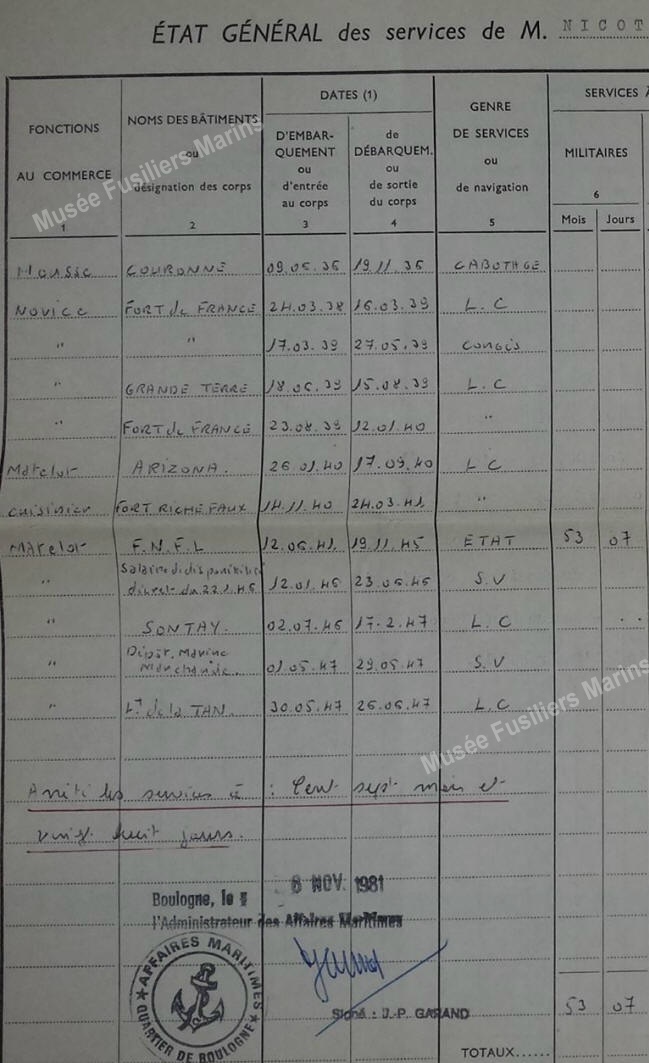 ÉTAT GÉNÉRAL des services de M. NICOT
FONCTIONS AU COMMERCE 1
NOMS DES BÂTIMENTS ou désignation des corps 2
DATES (1)
D'EMBARQUEMENT ou d'entrée au corps 3
de DÉBARQUEM. ou de sortie du corps 4
GENRE DE SERVICES ou de navigation 5
SERVICES À
MILITAIRES 6
Mois Jours
Mousse COURONNE 09.05.36 19.11.36 CABOTAGE
Novice FORT de FRANCE 24.03.38 16.03.39 L.C
" " 17.03.39 27.05.39 Congés
" GRANDE TERRE 18.06.39 15.08.39 L.C
" FORT de FRANCE 23.08.39 12.01.40 "
Matelot ARIZONA. 26.01.40 17.09.40 L C
cuisinier FORT RICHEPAUX 14.11.40 24.03.41 "
MAtelot F.N.F.L 12.06.41 19.11.45 ETAT 53 07
" Salaire de disponibilité
du 22.1.46 12.01.46 23.06.46 S.V
" SONTAY. 02.07.46 17-2.47 L.C
" Dépôt. Marine
Marchande 01.05.47 29.05.47 S.V
" Lt de la TAN. 30.05.47 26.06.47 L.C
Arrêté les services à : Cent sept mois et
vingt huit jours.
Boulogne, le 6 NOV. 1981
l'Administrateur des Affaires Maritimes
AFFAIRES MARITIMES
QUARTIER DE BOULOGNE
Signé : J.-P. GARAND
53 07
TOTAUX......
Musée Fusiliers Marins
Musée Fusiliers Marins